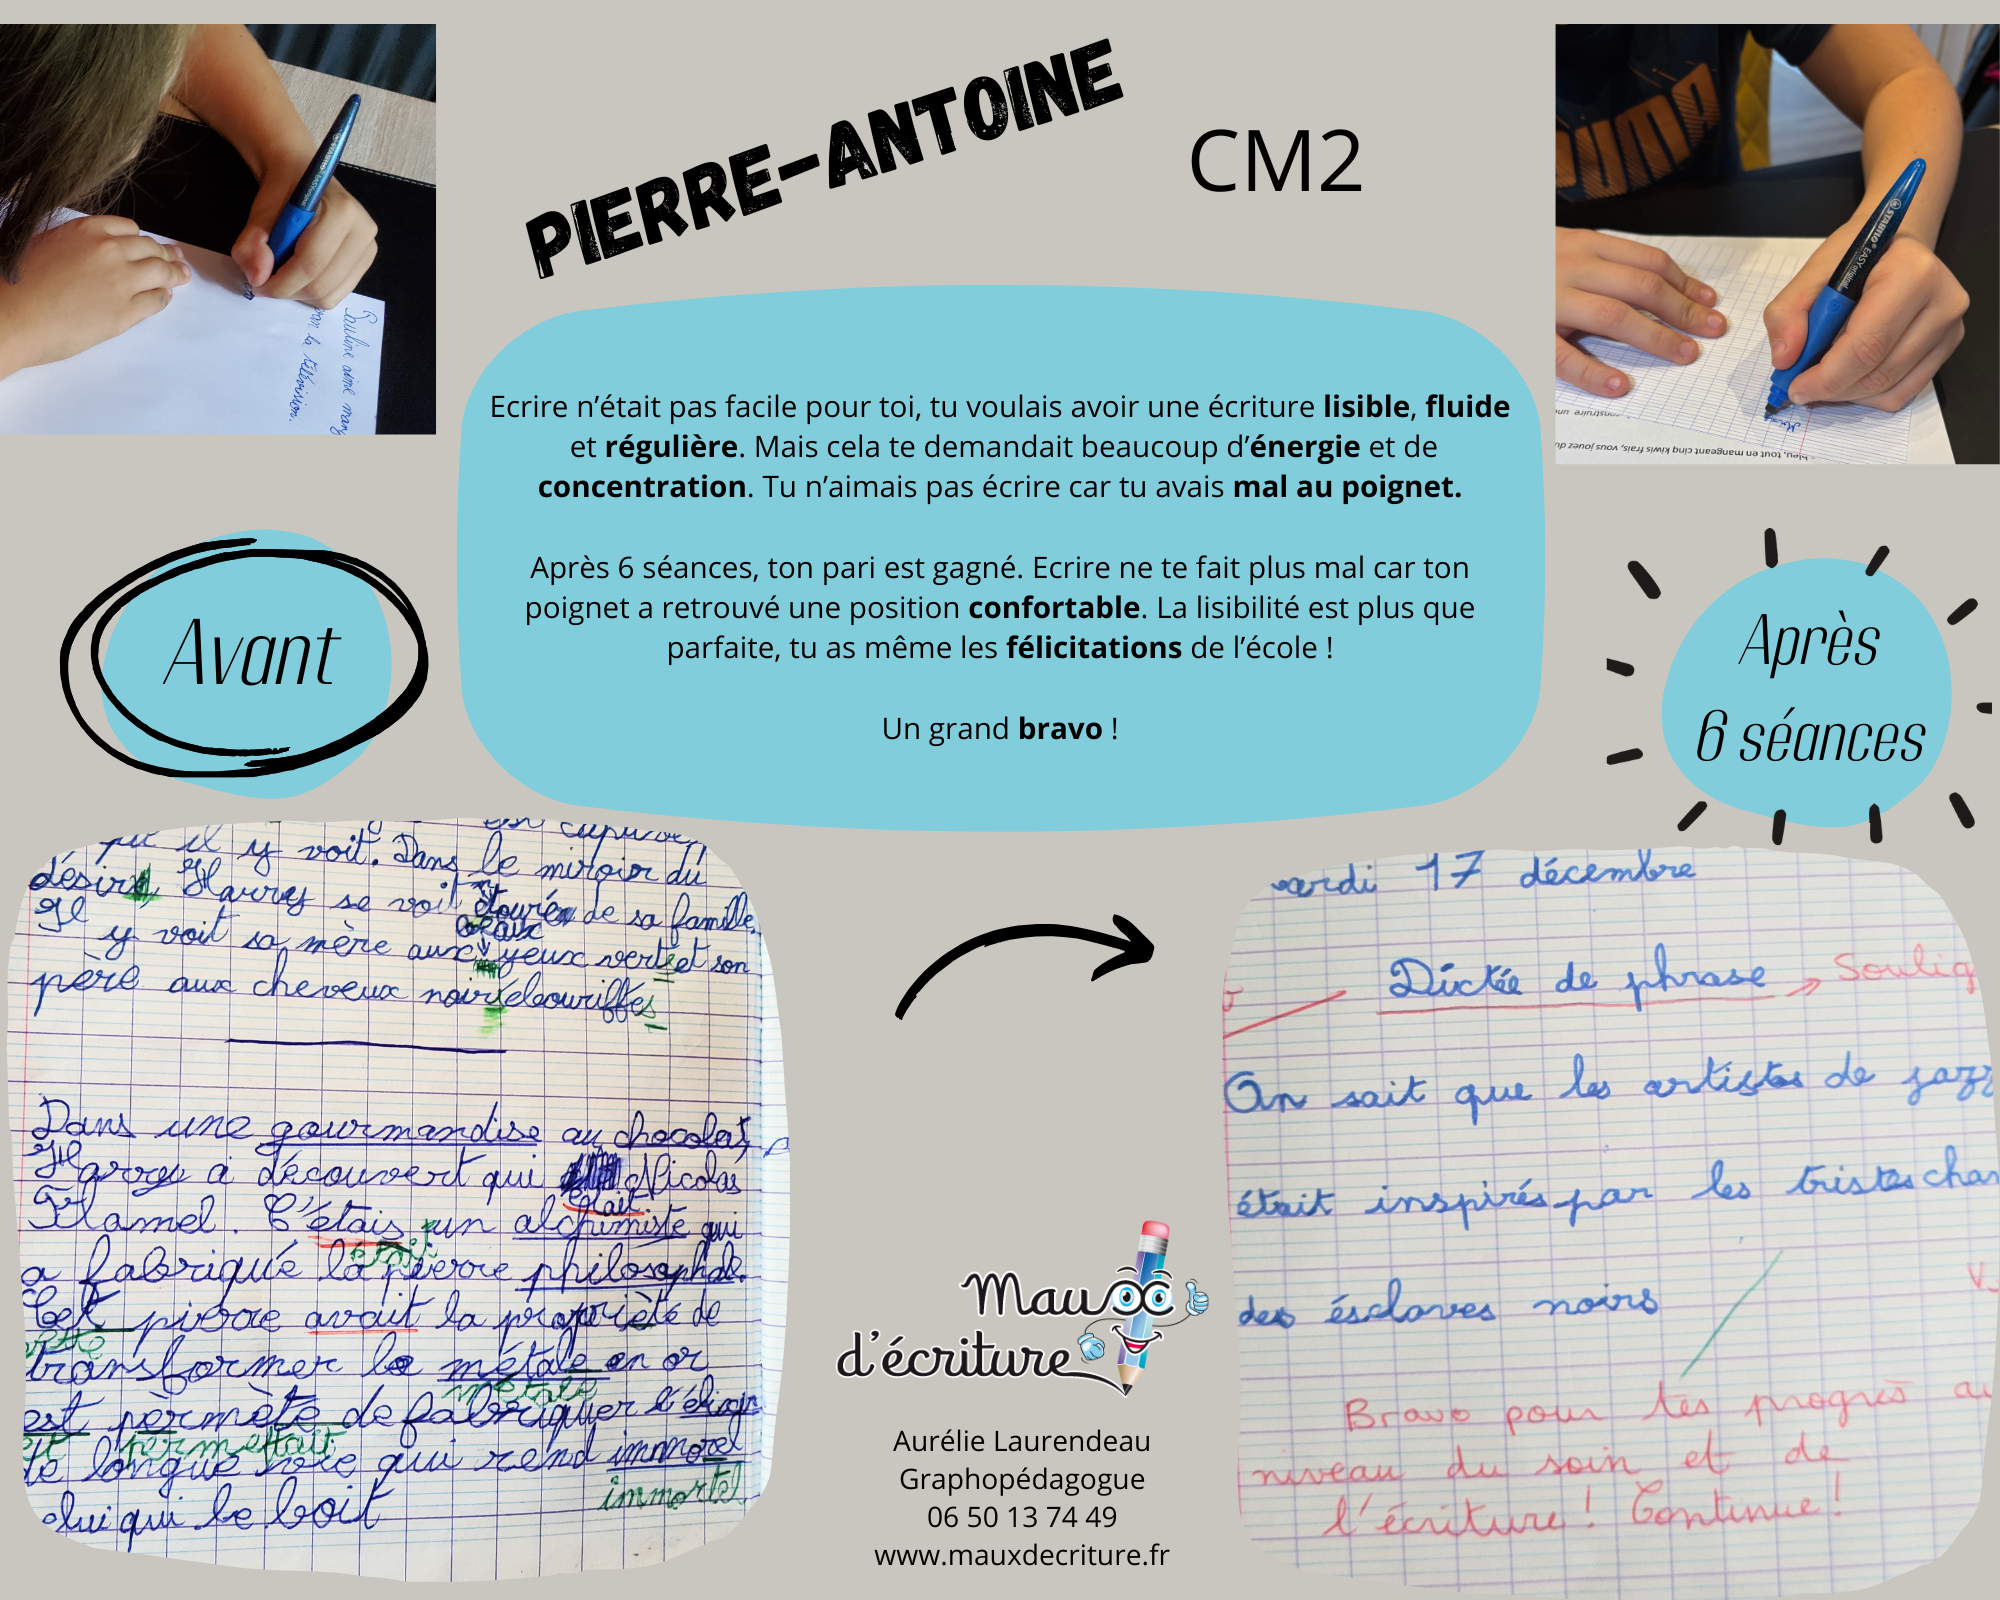 PIERRE-ANTOINE
CM2
STABILO EASYoriginal
Pauline aime mang
la télévision.
PUMA
STABILO EASYoriginal
bleu, tout en mangeant cinq kiwis frais, vous jouez du
construire une
Ecrire n'était pas facile pour toi, tu voulais avoir une écriture lisible, fluide
et régulière. Mais cela te demandait beaucoup d'énergie et de
concentration. Tu n'aimais pas écrire car tu avais mal au poignet.
Après 6 séances, ton pari est gagné. Ecrire ne te fait plus mal car ton
poignet a retrouvé une position confortable. La lisibilité est plus que
parfaite, tu as même les félicitations de l'école !
Un grand bravo !
Avant
Après
6 séances
il y voit. Dans le miroir du
Harry se voit de sa famille.
Il y voit sa mère aux yeux verts et son
père aux cheveux noirs ebouriffés
Dans une gourmandise au chocolat,
Harry a découvert qui Nicolas
était
Flamel. C'étais un alchimiste qui
était
a fabriqué la pierre philosophale.
Cet pierre avait la propriété de
transformer le métale en or
métale
est pèrmète de fabriquer l'
et permettait
de longue vie qui rend immorel
immortel
celui qui le boit
ardi 17 décembre
Dictée de phrase → Soulig
On sait que les artistes de jazz
était inspirés par les tristes chan
des ésclaves noirs
V
Bravo pour tes progrès au
niveau du soin et de
l'écriture ! Continue !
Maux
d'écriture
Aurélie Laurendeau
Graphopédagogue
06 50 13 74 49
www.mauxdecriture.fr